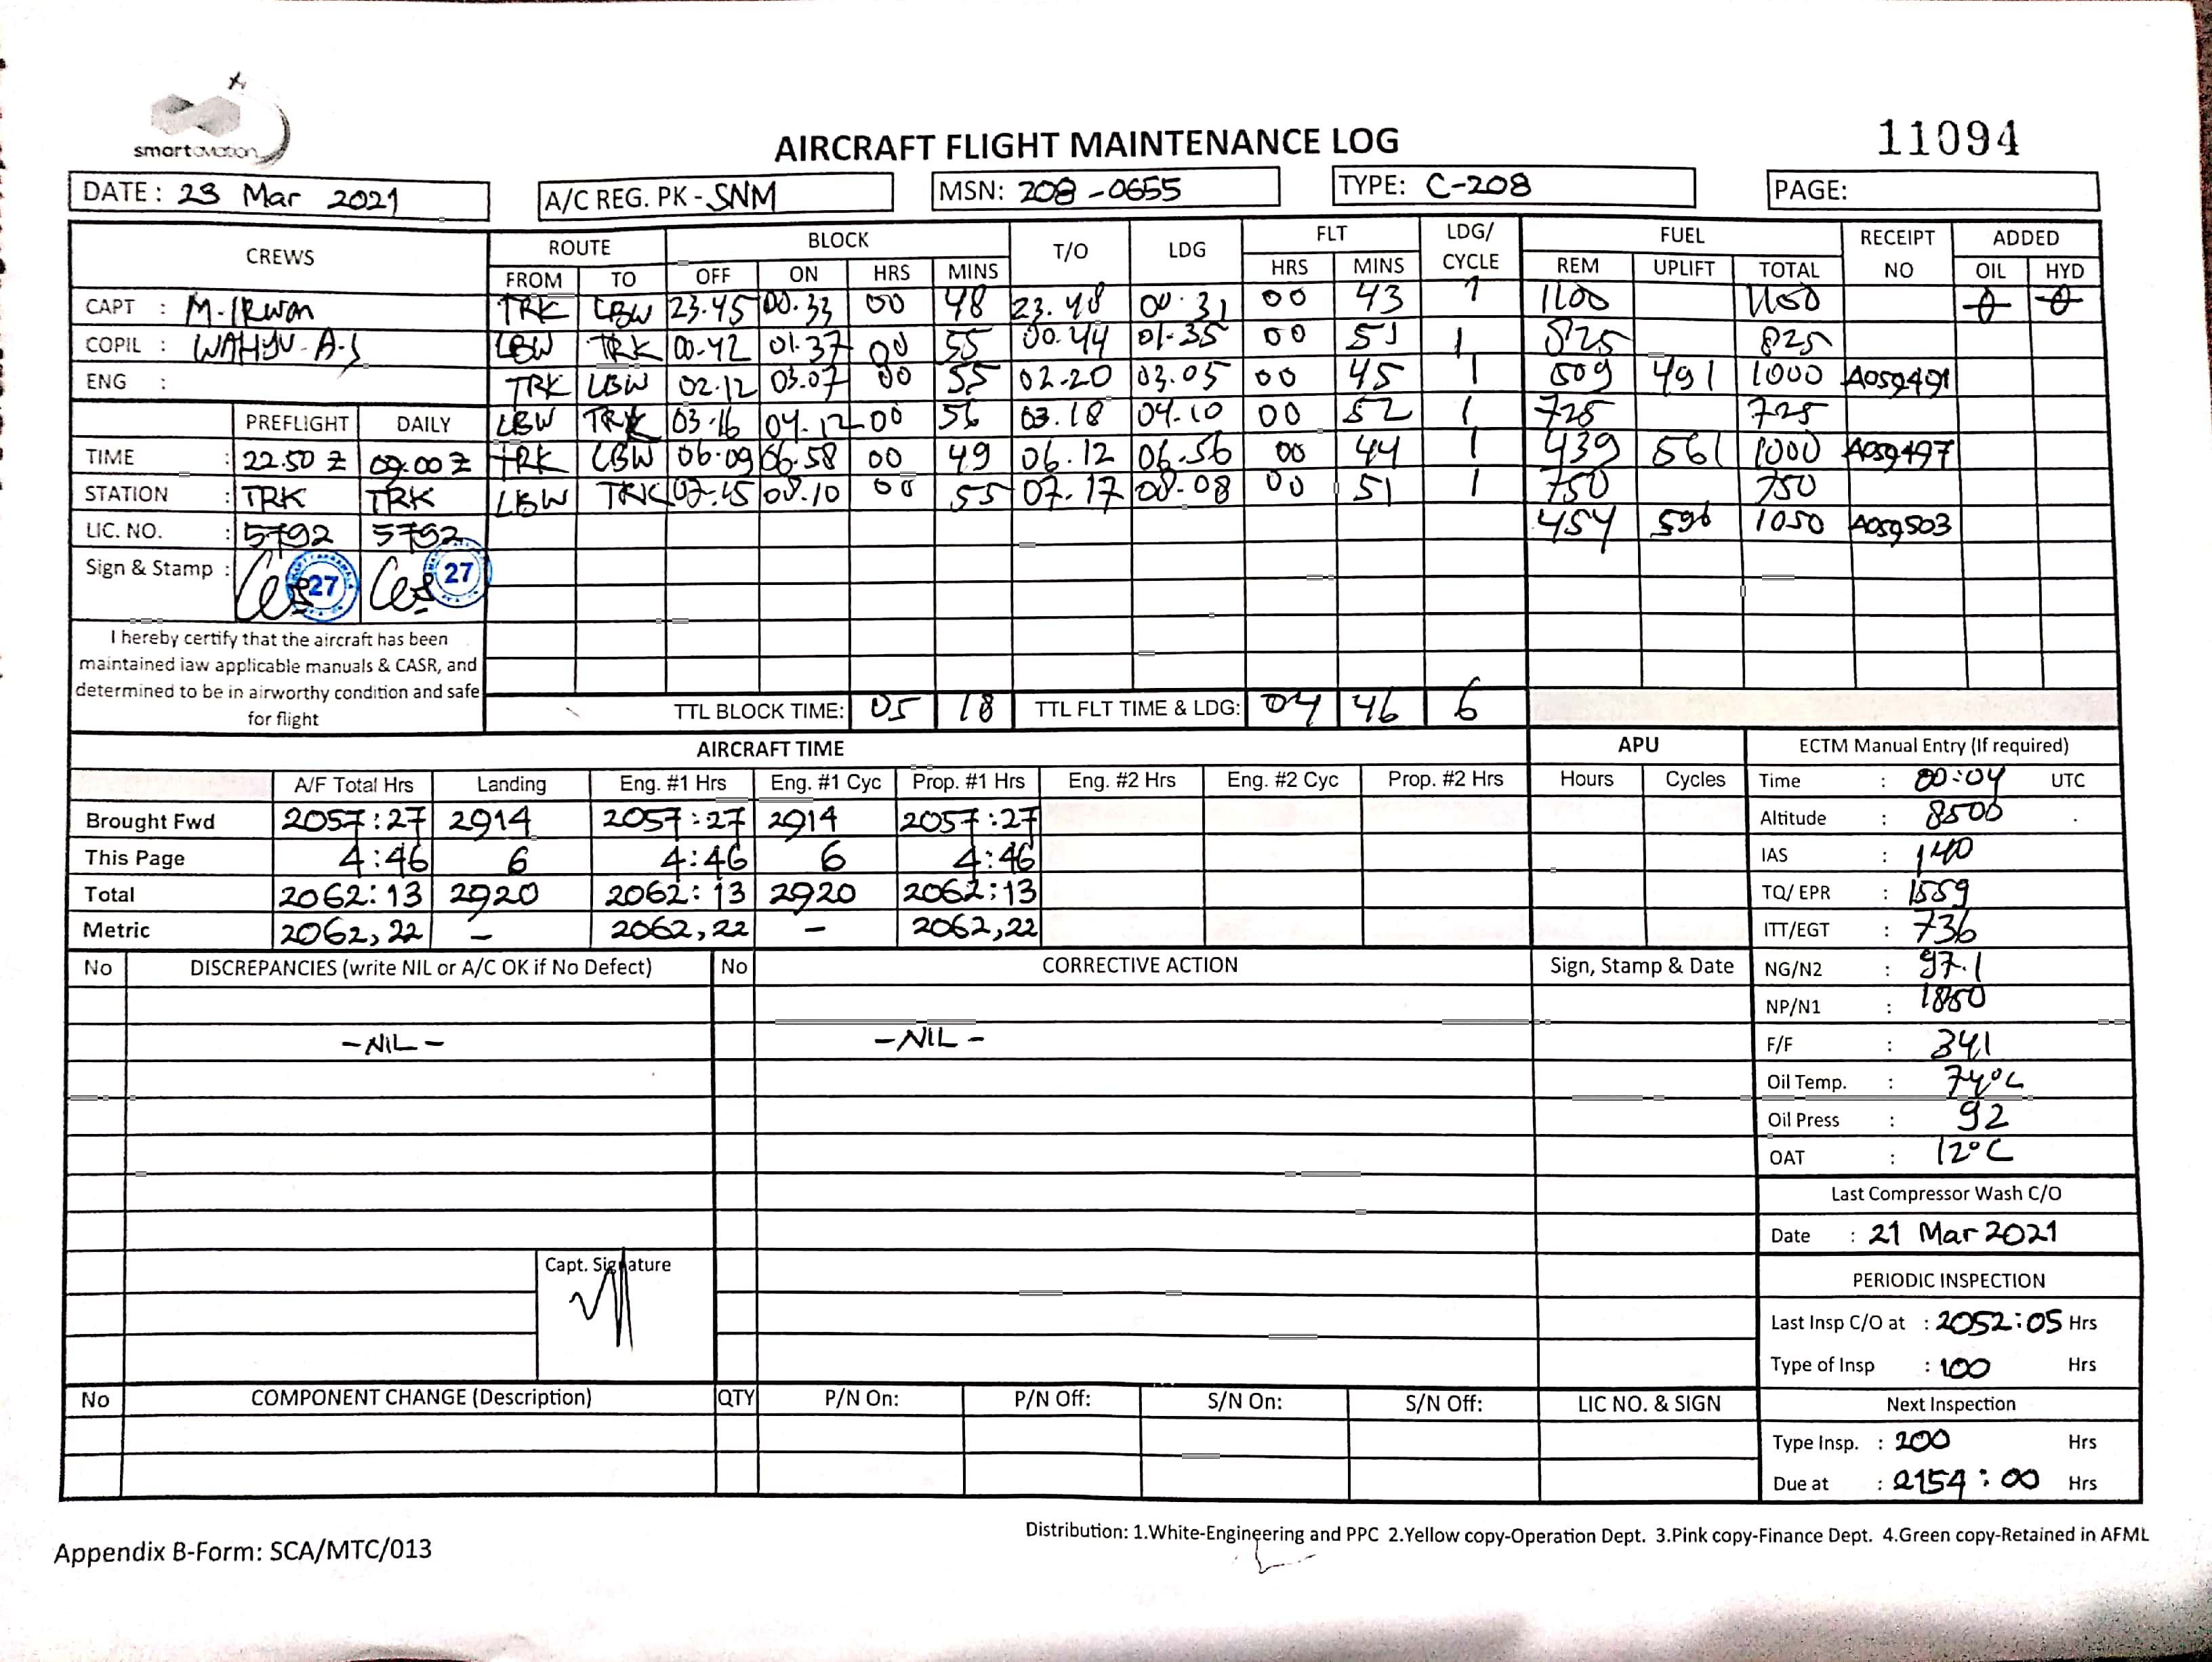 smartaviation
AIRCRAFT FLIGHT MAINTENANCE LOG
11094
DATE : 23 Mar 2021
A/C REG. PK - SNM
MSN: 208-0655
TYPE: C-208
PAGE:
CREWS ROUTE BLOCK T/O LDG FLT LDG/ CYCLE FUEL RECEIPT NO ADDED
FROM TO OFF ON HRS MINS HRS MINS REM UPLIFT TOTAL OIL HYD
CAPT : M. IRWAN TRK LBW 23.45 00.33 00 48 23.48 00.31 00 43 1 1100 1100 0 0
COPIL : WAHYU. A.S LBW TRK 00.42 01.37 00 55 00.44 01.35 00 51 1 825 825
ENG : TRK LBW 02.12 03.07 00 55 02.20 03.05 00 45 1 509 491 1000 A059491
PREFLIGHT DAILY LBW TRK 03.16 04.12 00 56 03.18 04.10 00 52 1 725 725
TIME : 22.50 Z 09.00 Z TRK LBW 06.09 06.58 00 49 06.12 06.56 00 44 1 439 561 1000 A059497
STATION : TRK TRK LBW TRK 07.15 08.10 00 55 07.17 08.08 00 51 1 750 750
LIC. NO. : 5792 5792 454 596 1050 A059503
Sign & Stamp : 27 27
I hereby certify that the aircraft has been
maintained iaw applicable manuals & CASR, and
determined to be in airworthy condition and safe
for flight
TTL BLOCK TIME: 05 18 TTL FLT TIME & LDG: 04 46 6
AIRCRAFT TIME APU
A/F Total Hrs Landing Eng. #1 Hrs Eng. #1 Cyc Prop. #1 Hrs Eng. #2 Hrs Eng. #2 Cyc Prop. #2 Hrs Hours Cycles
Brought Fwd 2057:27 2914 2057:27 2914 2057:27
This Page 4:46 6 4:46 6 4:46
Total 2062:13 2920 2062:13 2920 2062:13
Metric 2062,22 - 2062,22 - 2062,22
ECTM Manual Entry (If required)
Time : 00:04 UTC
Altitude : 8500
IAS : 140
TQ/ EPR : 1559
ITT/EGT : 736
NG/N2 : 97.1
NP/N1 : 1850
F/F : 341
Oil Temp. : 74°C
Oil Press : 92
OAT : 12°C
Last Compressor Wash C/O
Date : 21 Mar 2021
PERIODIC INSPECTION
Last Insp C/O at : 2052:05 Hrs
Type of Insp : 100 Hrs
Next Inspection
Type Insp. : 200 Hrs
Due at : 2154:00 Hrs
No DISCREPANCIES (write NIL or A/C OK if No Defect) No CORRECTIVE ACTION Sign, Stamp & Date
- NIL - - NIL -
Capt. Signature
No COMPONENT CHANGE (Description) QTY P/N On: P/N Off: S/N On: S/N Off: LIC NO. & SIGN
Distribution: 1.White-Engineering and PPC 2.Yellow copy-Operation Dept. 3.Pink copy-Finance Dept. 4.Green copy-Retained in AFML
Appendix B-Form: SCA/MTC/013